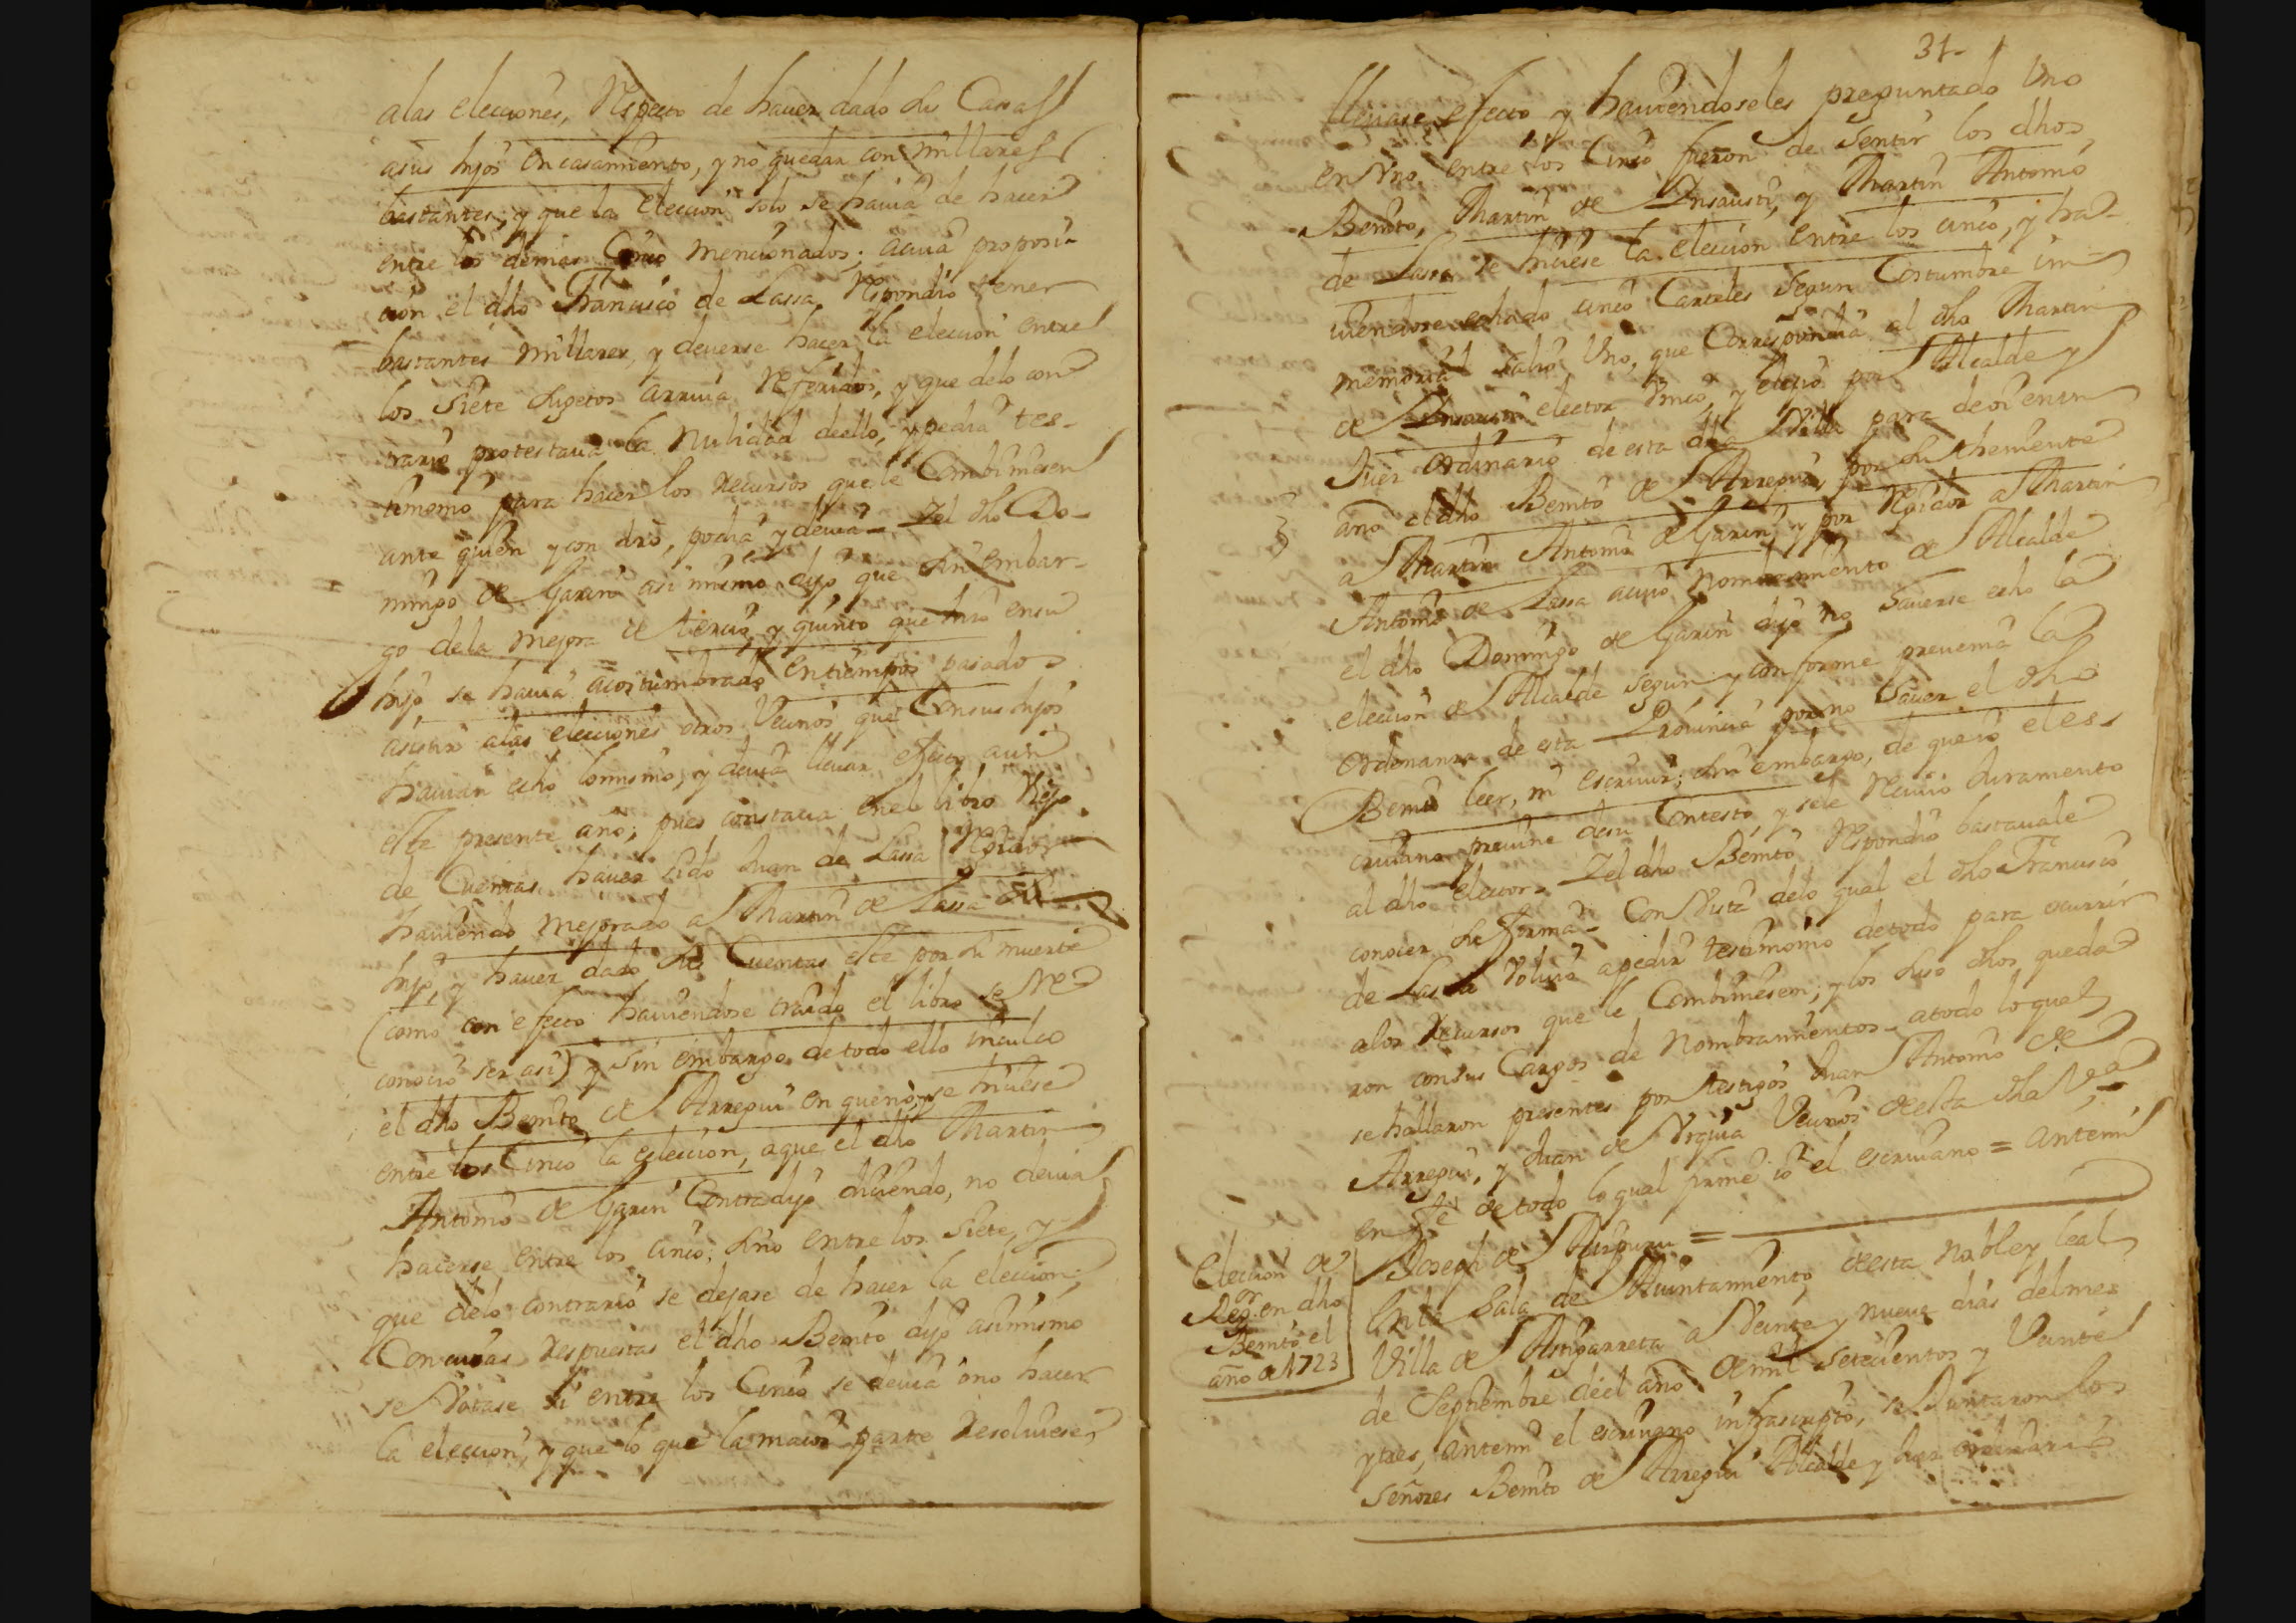 alas elecciones, Respecto de hauer dado su Cassa
asus hijos en casamiento, y no quedar con millares
bastantes, y que la eleccion solo se hauia de hacer
entre los demas Cinco mencionados; acuia proposi-
cion el dho Francisco de Lassa, Respondio tener
bastantes millares, y deuerse hacer la eleccion entre
los Siete sugetos arriua Referidos, y que delo con
trario protestaua la Nulidad deello, y pedia tes-
timonio para hacer los Recursos que le Combiniesen
ante quien y con dro, podia y deuia = Y el dho Do-
mingo de Garin asi mismo dijo que sin embar-
go dela mejora de tercio, y quinto que hiço ensu
hijo, se hauia acostumbrado entiempos pasados
asistir alas elecciones otros Vecinos que Consus hijos
hauian echo lo mismo, y deuia lleuar efecto aun
este presente año; pues constaua enel libro Viejo
de Cuentas hauer sido Juan de Lassa Regidor
hauiendo mejorado a Martin de Lassa su
hijo, y hauer dado las Cuentas este por su muerte
(como con efecto hauiendose traido el libro se Re
conocio ser asi) y sin embargo de todo ello inculco
el dho Benito de Arregui en quenó, se hiciese
entre los Cinco la eleccion, aque el dho Martin
Antonio de Garin Contradijo diciendo, no deuia
hacerse entre los cinco, sino entre los Siete, y
que delo contrario se dejase de hacer la eleccion;
Con cuias Respuestas el dho Benito dijo asimismo
se Votase si entre los Cinco se deuia ono hacer
la eleccion, y que lo que la maior parte Resoluiese
31-
lleuase efecto y hauiendoseles preguntado Uno
en Uno, entre los Cinco fueron de Sentir los dhos
Benito, Martin de Insausti, y Martin Antonio
de Lassa se hiciese la eleccion entre los cinco, y ha-
uiendose echado cinco Carteles segun Costumbre in-
memorial salio Uno, que Correspondia al dho Martin
de Insausti elector Unico, y elijio por Alcalde y
Juez ordinario de esta dha Villa para de
año el dho Benito de Arregui, por su theniente
a Martin Antonio de Garin, y por Regidor a Martin
Antonio de Lassa acuio nombramiento de Alcalde
el dho Domingo de Garin dijo no hauerse echo la
eleccion de Alcalde segun y conforme preuenia la
Ordenanza de esta Prouincia por no Sauer el dho
Benito leer, ni escriuir; sin embargo, de que io el es-
criuano preuine desu Contesto y sele Reciuio Juramento
al dho elector = Y el dho Benito Respondio bastauale
conocer su firma = Con Vista delo qual el dho Francisco
de Lassa Voluia apedir testimonio de todo para ocurrir
alos Recursos que le Combiniesen; y los suso dhos queda
ron consus Cargos de Nombramientos = atodo lo qual
se hallaron presentes por testigos Juan Antonio de
Arregui, y Juan de Urquia Vecinos de esta dha Va
en fe de todo lo qual firme io el escriuano = Antemi
Joseph de Aizpuru =
Eleccion de
Regor en dho
Benito el
año de 1723
Enla Sala de Aiuntamiento, de esta Noble y leal
Villa de Astigarreta a Veinte y nueue dias del mes
de Septiembre deel año de mil setecientos y Veinte
y tres, antemi el escriuano infrascripto, se Juntaron los
Señores Benito de Arregui Alcalde y Juez ordinario